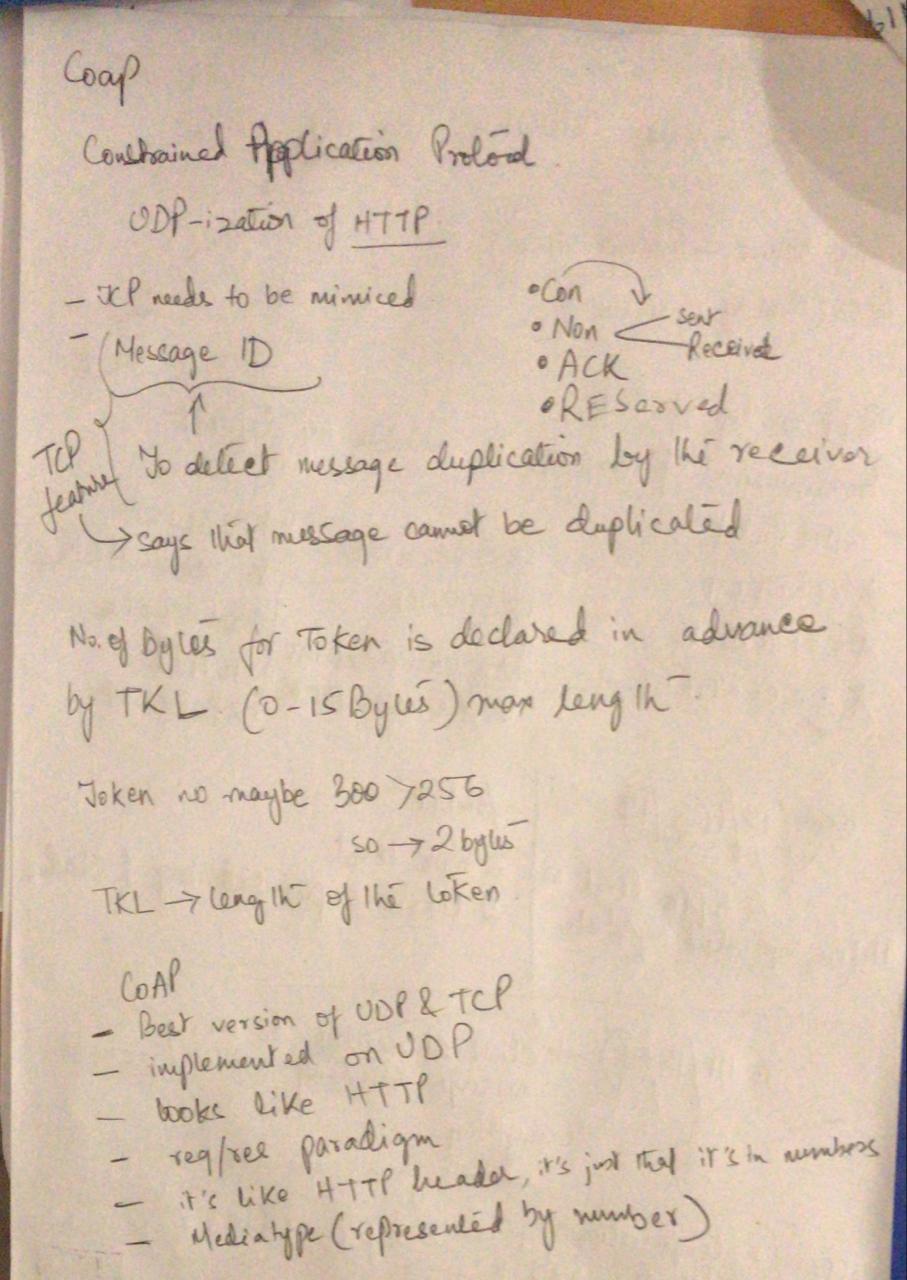 Coap
Constrained Application Protocol
UDP-ization of HTTP
- TCP needs to be mimiced
- Message ID
• Con
• Non
sent
Receive
• ACK
• REServed
TCP feature
To detect message duplication by the receiver
→ says that message cannot be duplicated
No. of Bytes for Token is declared in advance
by TKL (0-15 Bytes) max length
Token no maybe 300 > 256
so → 2 bytes
TKL → length of the token
CoAP
- Best version of UDP & TCP
- implemented on UDP
- looks like HTTP
- req/res paradigm
- it's like HTTP header, it's just that it's in numbers
- Mediatype (represented by number)